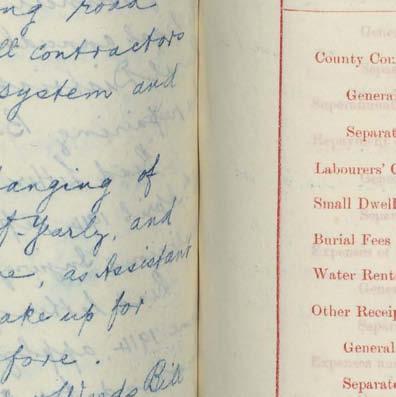 ng road
ll contractors
system and
anging of
f-Yearly, and
e, as Assistant
ake up for
fore.
Winds Bill
County Cou
General
Separat
Labourers' C
Small Dwell
Burial Fees
Water Rent
Other Receip
General
Separate